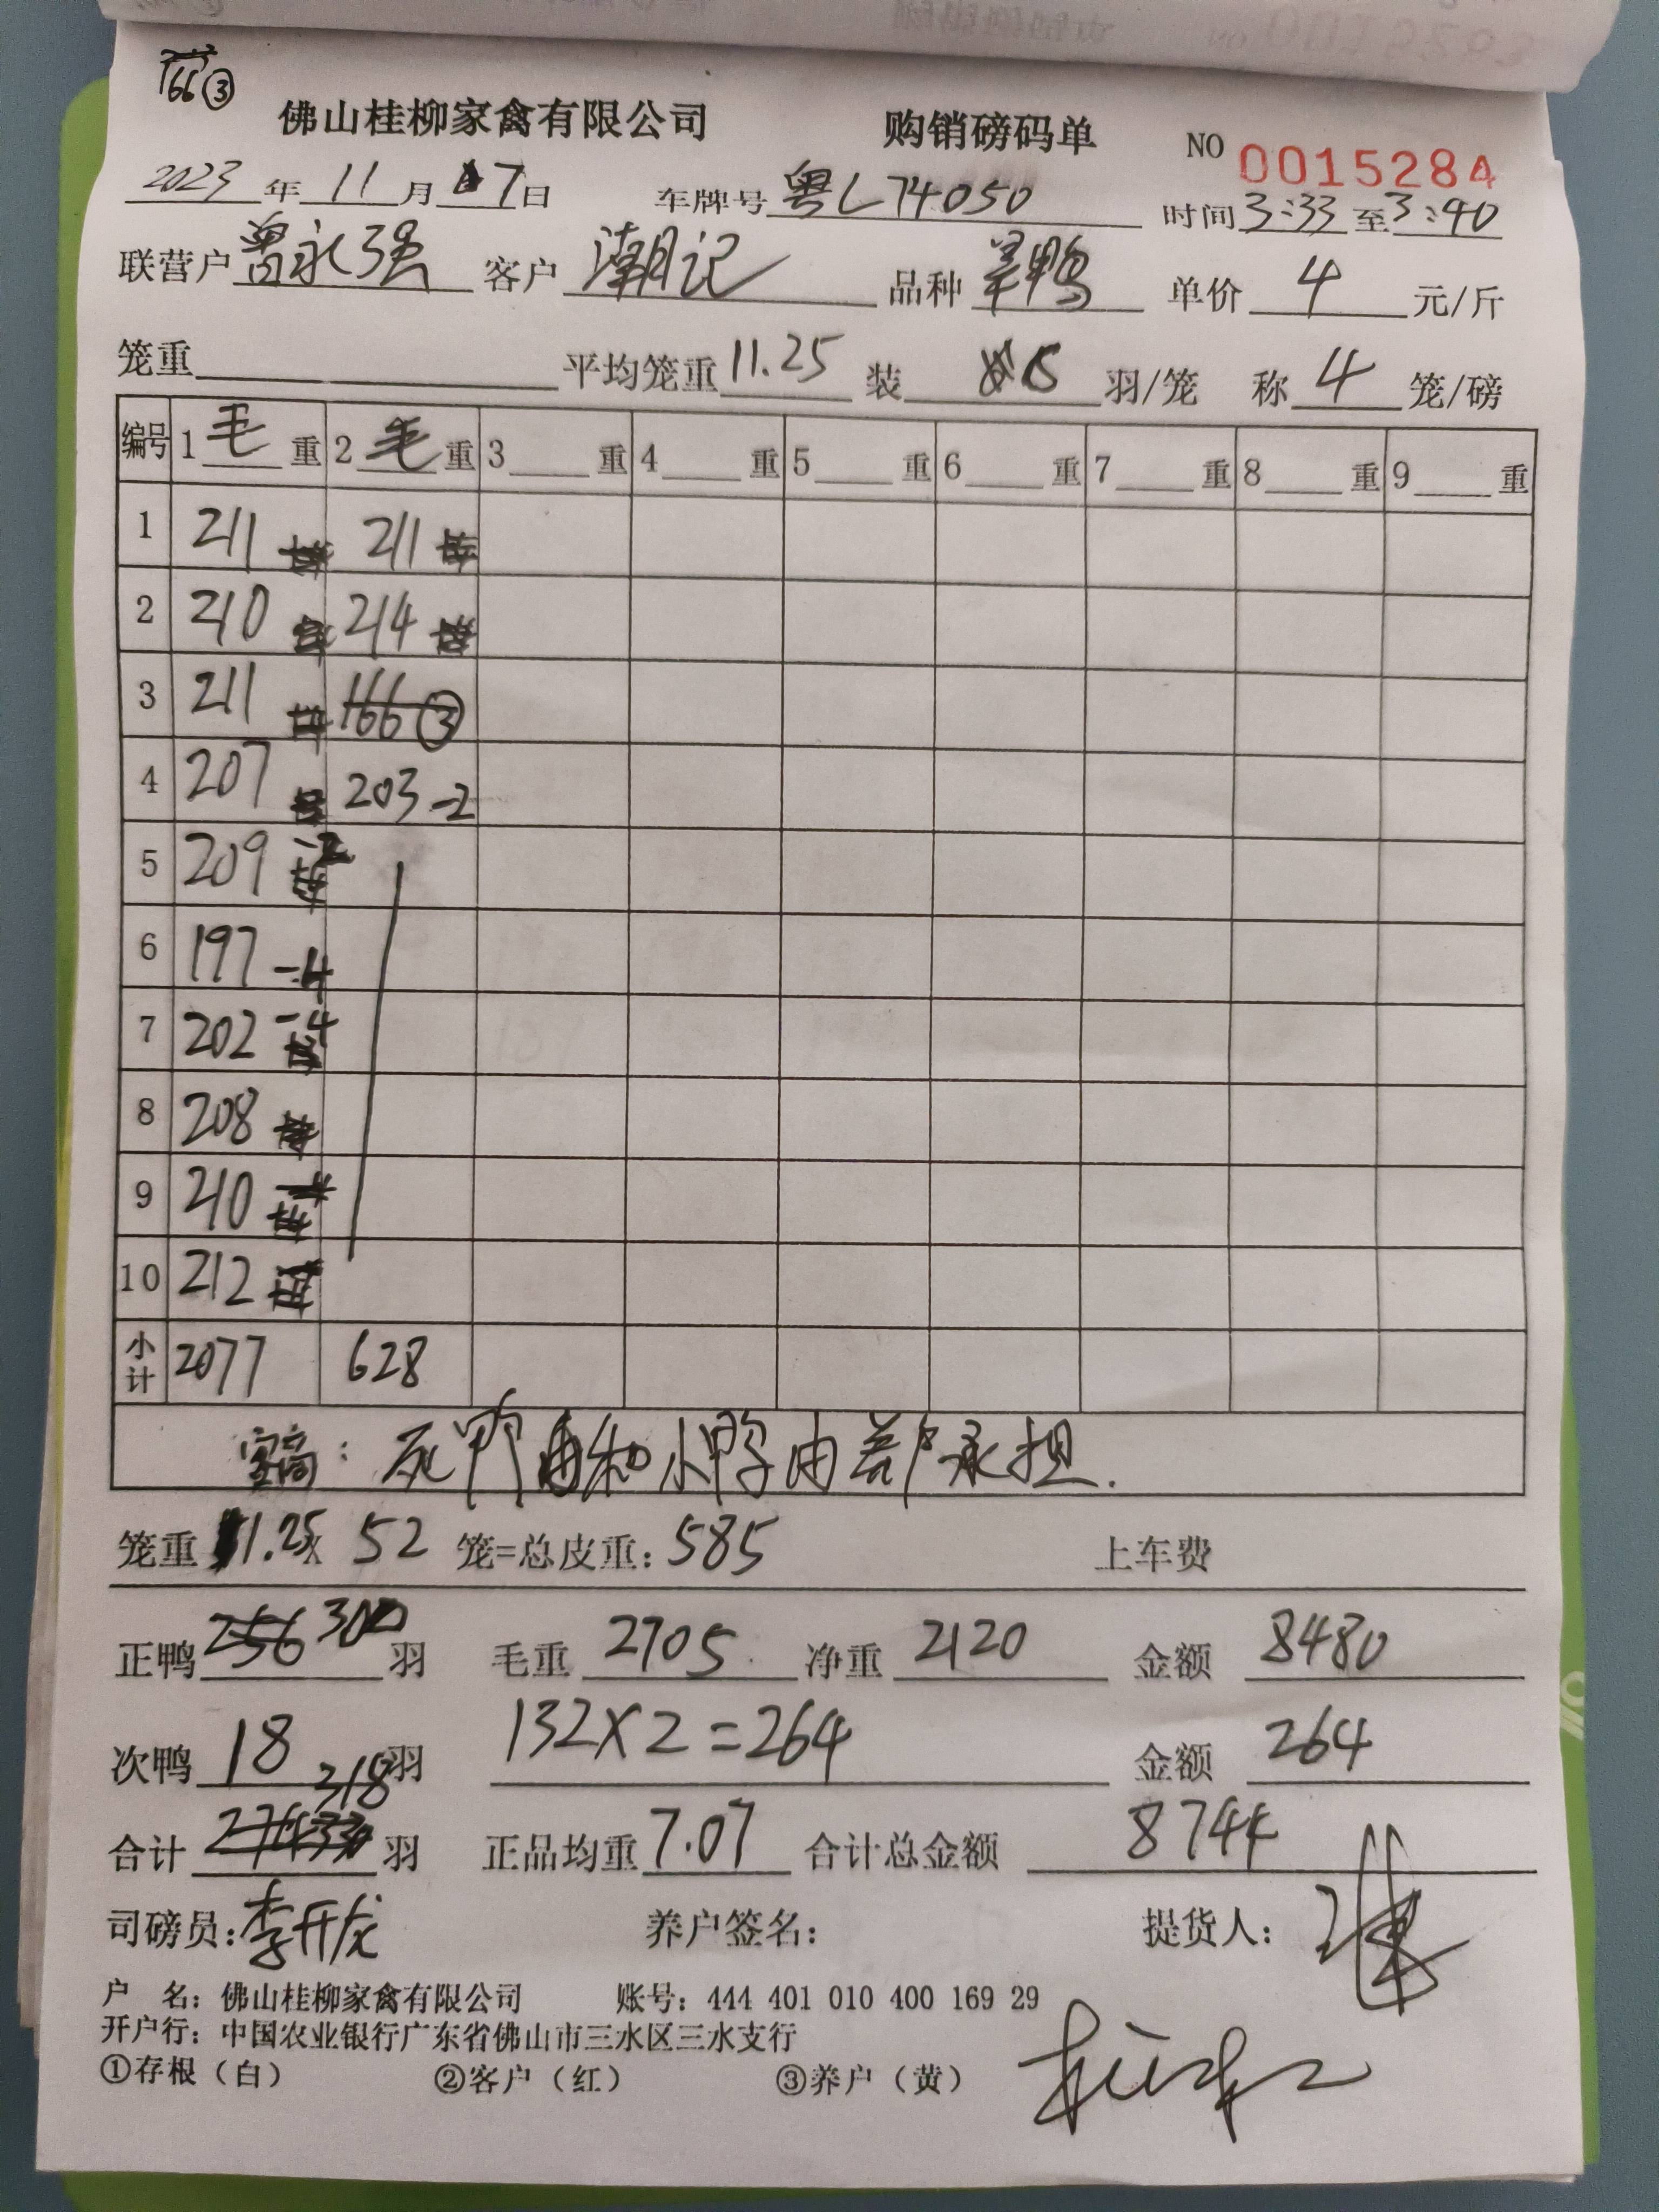 166③
佛山桂柳家禽有限公司 购销磅码单 NO 0015284
2023年11月7日 车牌号粤L74050 时间3:33至3:40
联营户曾永强 客户潮记 品种羊鸭 单价4元/斤
笼重 平均笼重11.25 装羽/笼 称4笼/磅
编号 1毛重 2毛重 3重 4重 5重 6重 7重 8重 9重
1 211 211
2 210 214
3 211 166③
4 207 203 -2
5 209 -2
6 197 -4
7 202 -4
8 208
9 210
10 212
小计 2077 628
死鸭和小鸭由养户承担.
笼重11.25X52笼=总皮重:585 上车费
正鸭256 300羽 毛重2705 净重2120 金额8480
次鸭18羽 132X2=264 金额264
318
合计羽 正品均重7.07 合计总金额8744
司磅员:李开龙 养户签名: 提货人:
户 名:佛山桂柳家禽有限公司 账号:444 401 010 400 169 29
开户行:中国农业银行广东省佛山市三水区三水支行
①存根(白) ②客户(红) ③养户(黄)